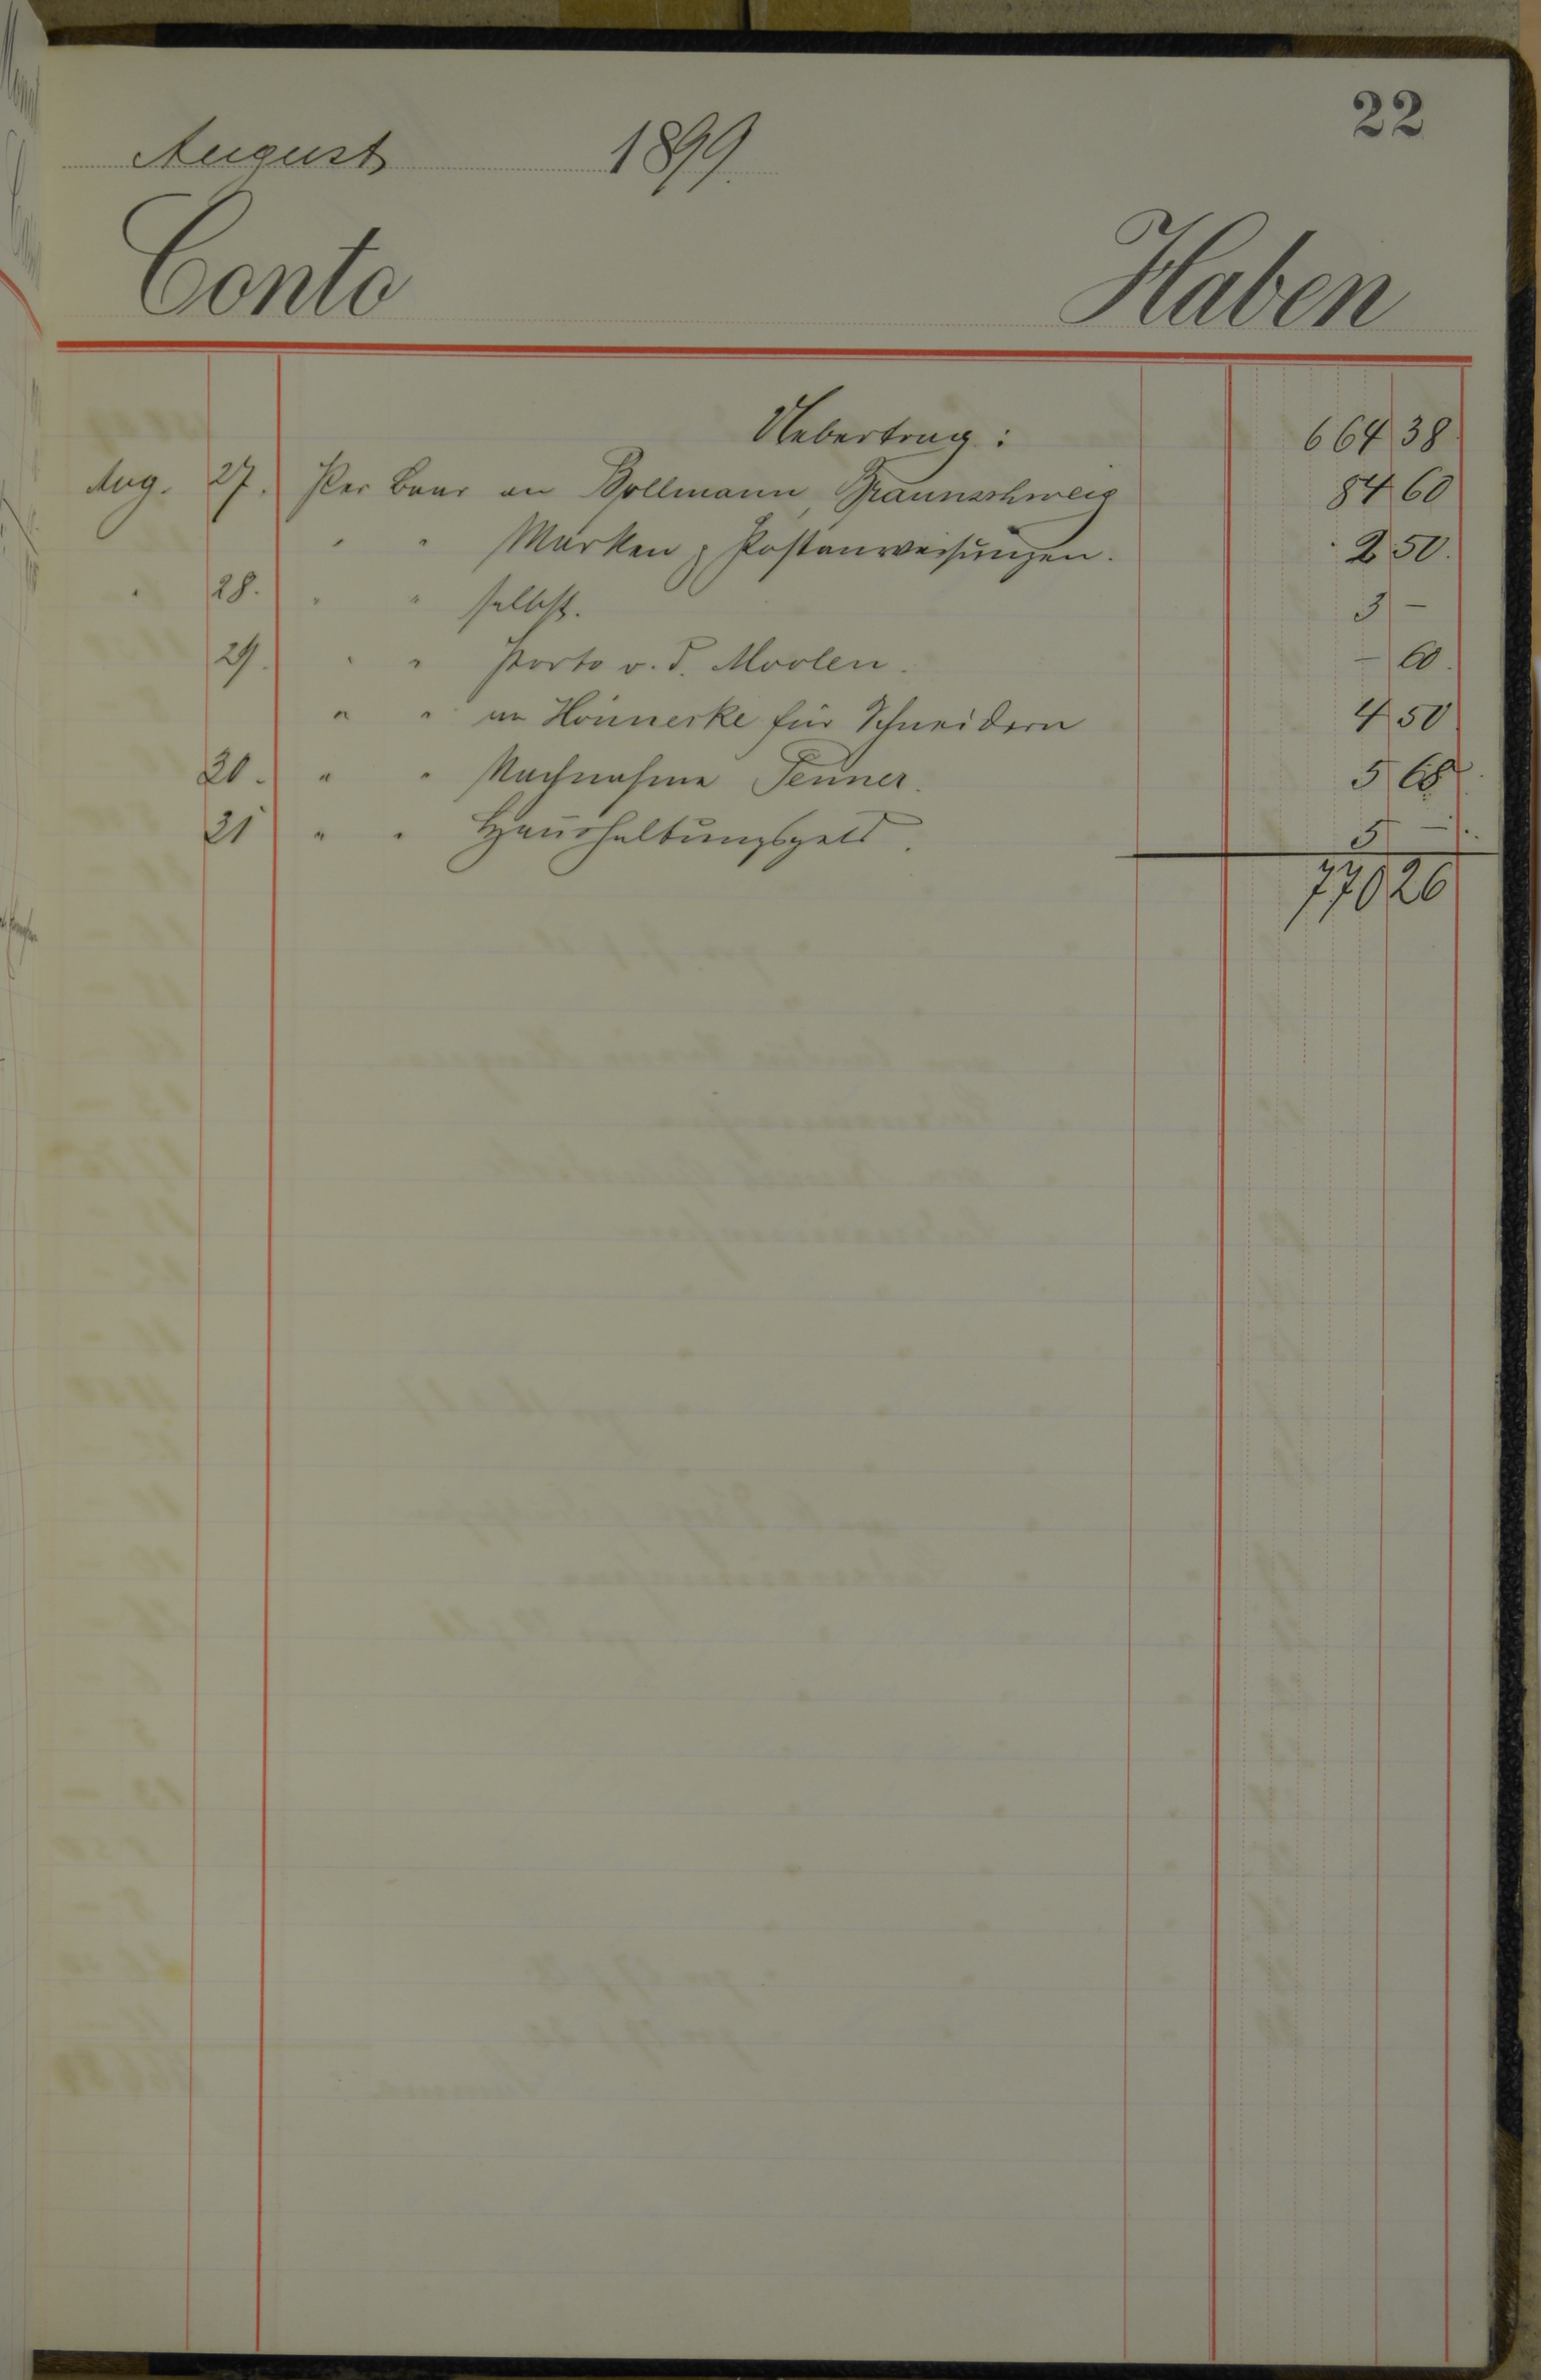 22
August 1899.
Conto Haben
Uebertrag: 664 38
Aug. 27. Per Baar an Bollmann, Braunschweig 84 60
" " Marken & Postanweisungen. 2 50.
" 28. " " selbst. 3 –
29. " " Porto v. d. Moolen. – 60.
" " an Hönnerke für Schneidern 4 50
30. " " Nachnahme Tenner. 5 68
31 " " Haushaltungsgeld. 5 –
770 26